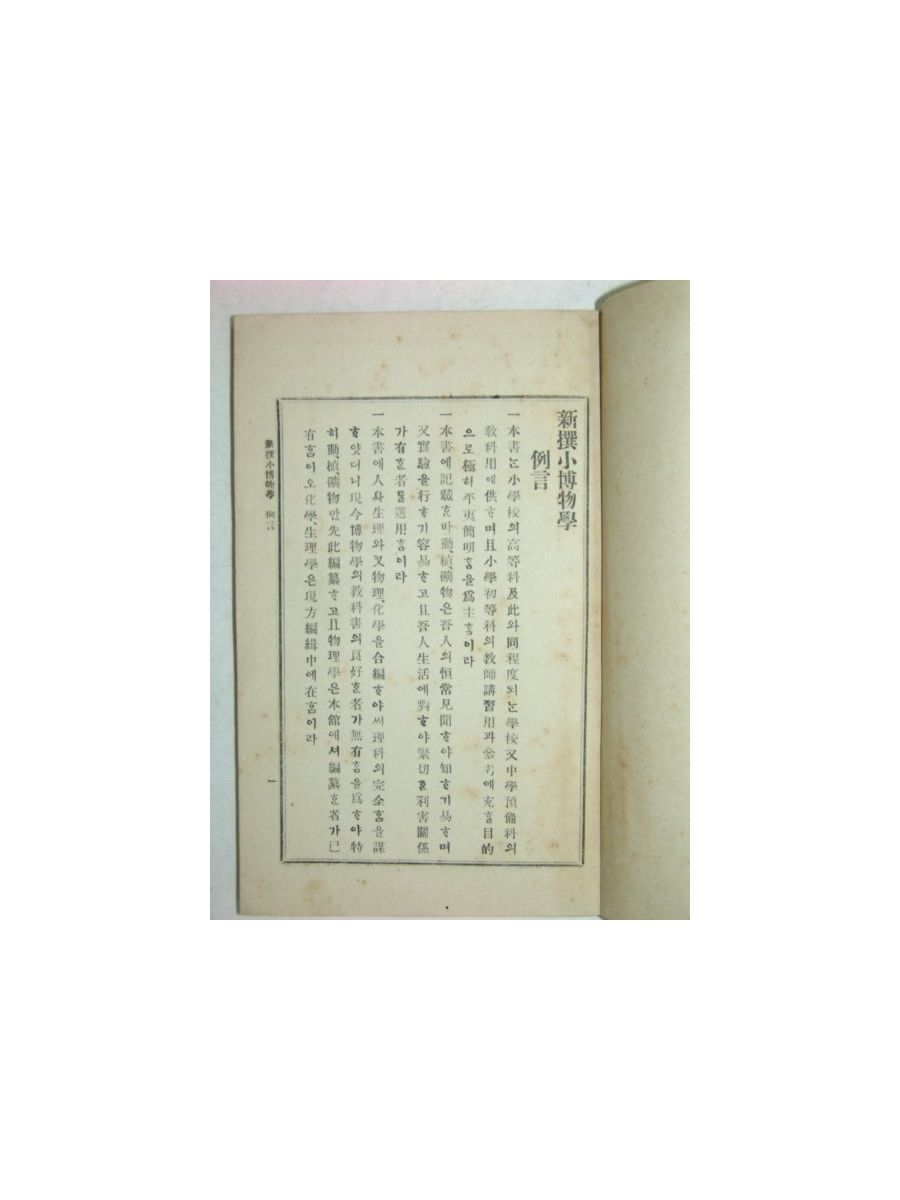 新撰小博物學
例言
一本書ᄂᆞᆫ小學校의高等科及此와同程度되ᄂᆞᆫ學校又中學預備科의
教科用에供ᄒᆞ며且小學初等科의教師講習用과參考에充ᄒᆞᆯ目的
으로極히平夷簡明ᄒᆞᆷ을爲主ᄒᆞᆷ이라
一本書에記載ᄒᆞᆫ바動、植、礦物은吾人의恒常見聞ᄒᆞ야知ᄒᆞ기易ᄒᆞ며
又實驗을行ᄒᆞ기容易ᄒᆞ고且吾人生活에對ᄒᆞ야緊切ᄒᆞᆫ利害關係
가有ᄒᆞᆫ者를選用ᄒᆞᆷ이라
一本書에人身生理와又物理、化學을合編ᄒᆞ야써理科의完全ᄒᆞᆷ을謀
ᄒᆞ얏더니現今博物學의教科書의良好ᄒᆞᆫ者가無有ᄒᆞᆷ을爲ᄒᆞ야特
히動、植、礦物만先此編纂ᄒᆞ고且物理學은本館에셔編纂ᄒᆞᆫ者가已
有ᄒᆞᆷ이오化學、生理學은現方編緝中에在ᄒᆞᆷ이라
新撰小博物學 例言
一